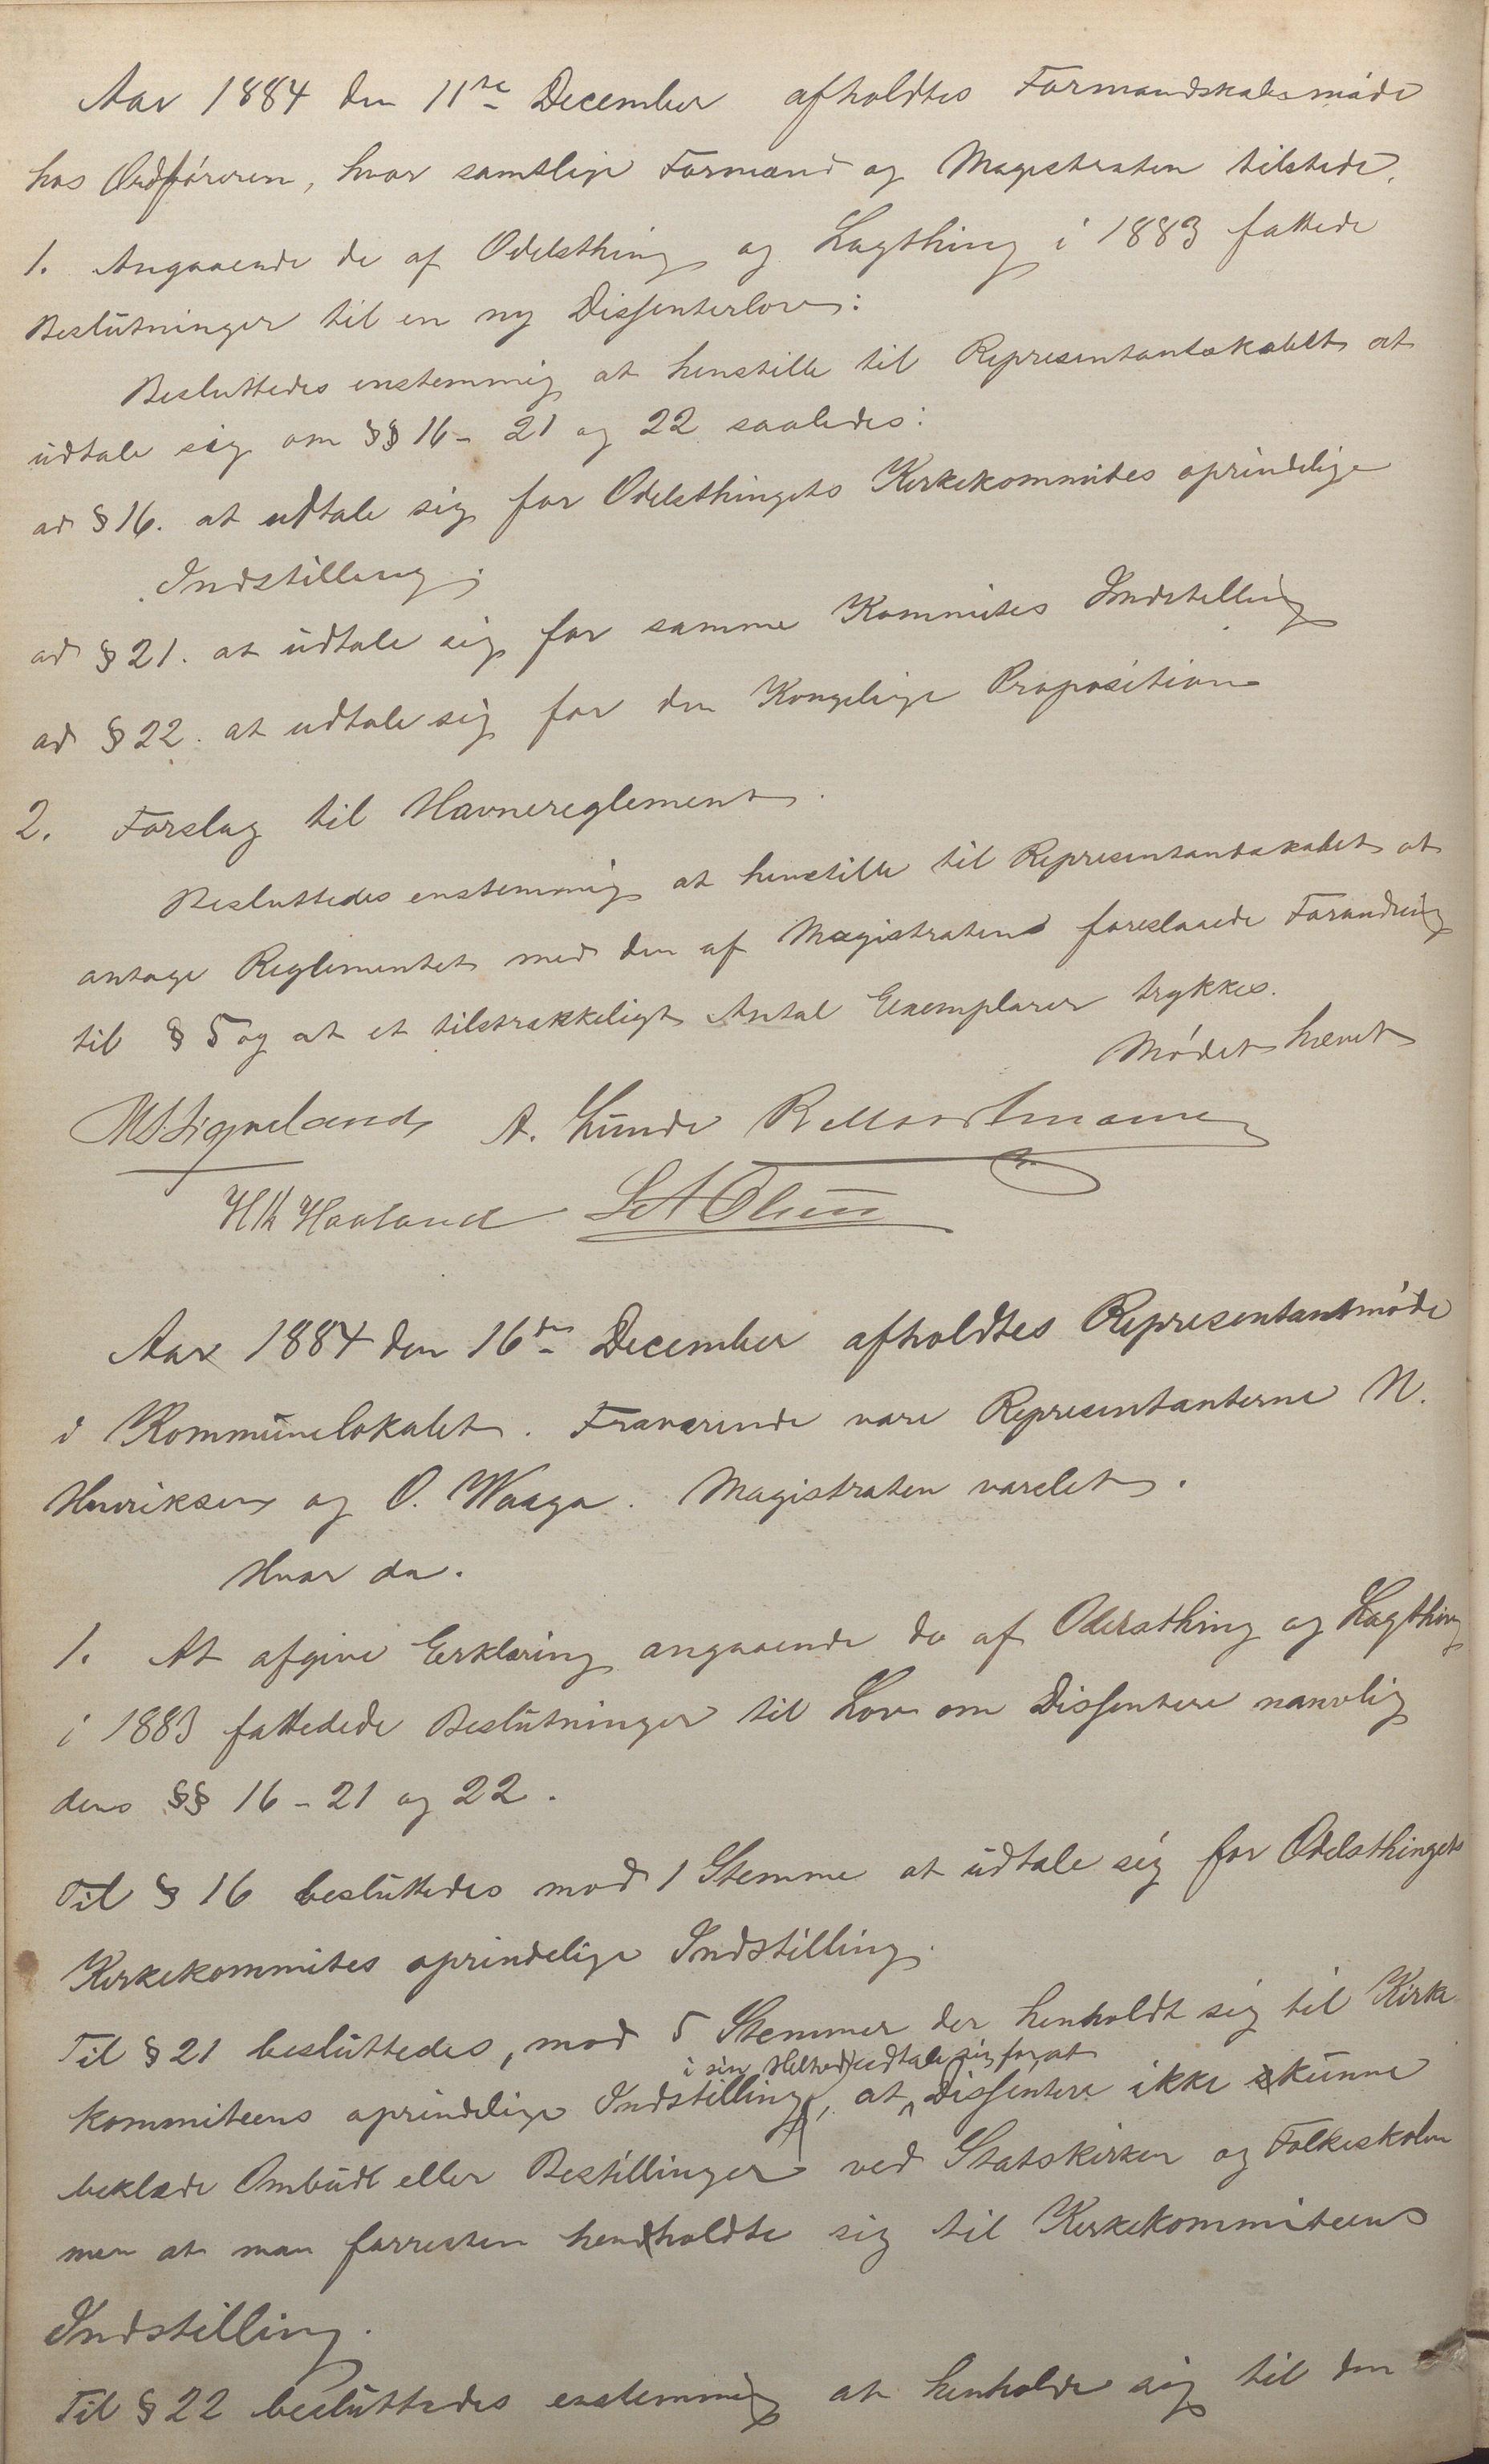 Aar 1884 den 11te December afholdtes Formandskabsmøde
hos Ordføreren, hvor samtlige Formænd og Magistraten tilstede.
1. Angaaende de af Odelsthing og Lagthing i 1883 fattede
Beslutninger til en ny Dissenterlov:
Besluttedes enstemmig at henstille til Representantskabet at
udtale sig om §§ 16 - 21 og 22 saaledes:
ad § 16. at udtale sig for Odelsthingets Kirkekommites oprindelige
Indstilling.
ad § 21. at udtale sig for samme Kommites Indstilling
ad § 22. at udtale sig for den Kongelige Proposition
2. Forslag til Havnereglement.
Besluttedes enstemmig at henstille til Representantskabet at
antage Reglementet med den af Magistraten foreslaaede Forandring
til § 5 og at et tilstrækkeligt Antal Exemplarer trykkes.
Mødet hævet
A. Lunde
H Th Haaland
Aar 1884 den 16de December afholdtes Representantmøde
i Kommunelokalet. Fraværende vare Representanterne N.
Henriksen og O. Waage. Magistraten varslet.
Hvor da.
1. At afgive Erklæring angaaende de af Odelsthing og Lagthing
i 1883 fattedede Beslutninger til Lov om Dissentere navnlig
dens §§ 16 - 21 og 22.
Til § 16 besluttedes mod 1 Stemme at udtale sig for Odelsthingets
Kirkekommites oprindelige Indstilling.
Til § 21 besluttedes, mod 5 Stemmer der henholdt sig til Kirke
i sin Helhed, udtale sig for, at
kommiteens oprindelige Indstilling, at Dissentere ikke kunne
beklæde Ombud eller Bestillinger ved Statskirken og Folkeskolen
men at man forresten henholdte sig til Kirkekommiteens
Indstilling.
Til § 22 besluttedes enstemmig at henholde sig til den